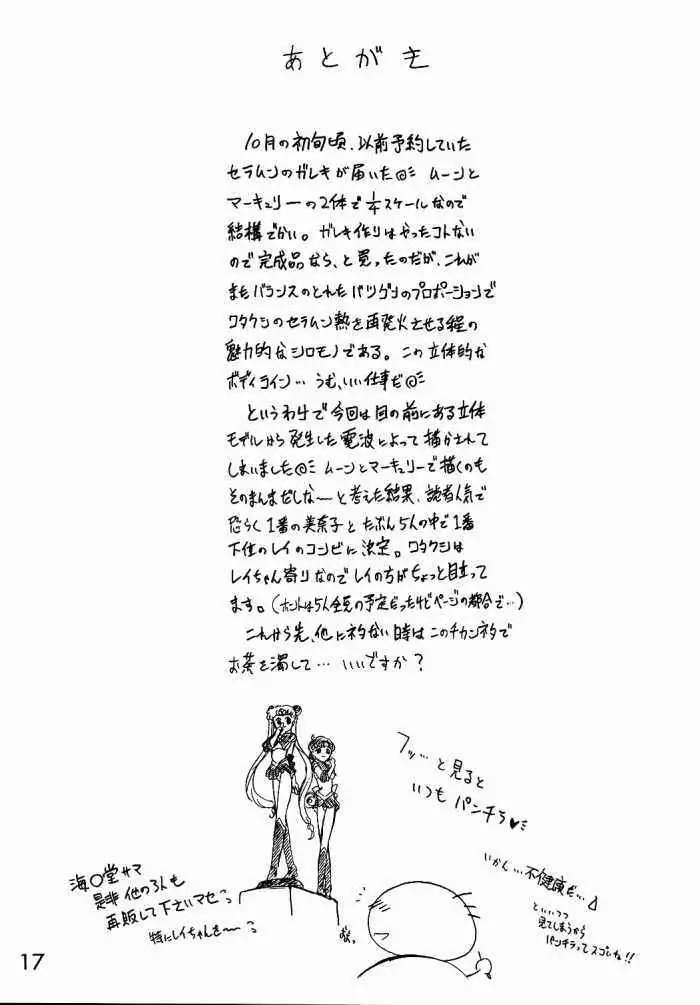 あとがき
10月の初旬頃、以前予約していた
セラムンのガレキが届いた◎ミ ムーンと
マーキュリーの2体で1/4スケールなので
結構でかい。ガレキ作りはやったコトない
ので完成品なら、と買ったのだが、これが
またバランスのとれたバツグンのプロポーションで
ワタクシのセラムン熱を再発火させる程の
魅力的なシロモノである。この立体的な
ボディライン… うむ、いい仕事だ◎ミ
というわけで今回は目の前にある立体
モデルから発生した電波によって描かされて
しまいました◎ミ ムーンとマーキュリーで描くのも
そのまんまだしな〜と考えた結果、読者人気で
恐らく1番の美奈子とたぶん5人の中で1番
下位のレイのコンビに決定。ワタクシは
レイちゃん寄りなのでレイの方がちょっと目立って
ます。(ホントは5人全員の予定だったけどページの都合で…)
これから先、他にネタない時はこのチカンネタで
お茶を濁して… いいですか?
フッ…と見ると
いつもパンチラ♥ミ
海○堂サマ
是非他の3人も
再販して下さいマセ
特にレイちゃんを〜
いかん…不健康だ…
といいつつ
見てしまうから
パンチラってスゴいね!!
17